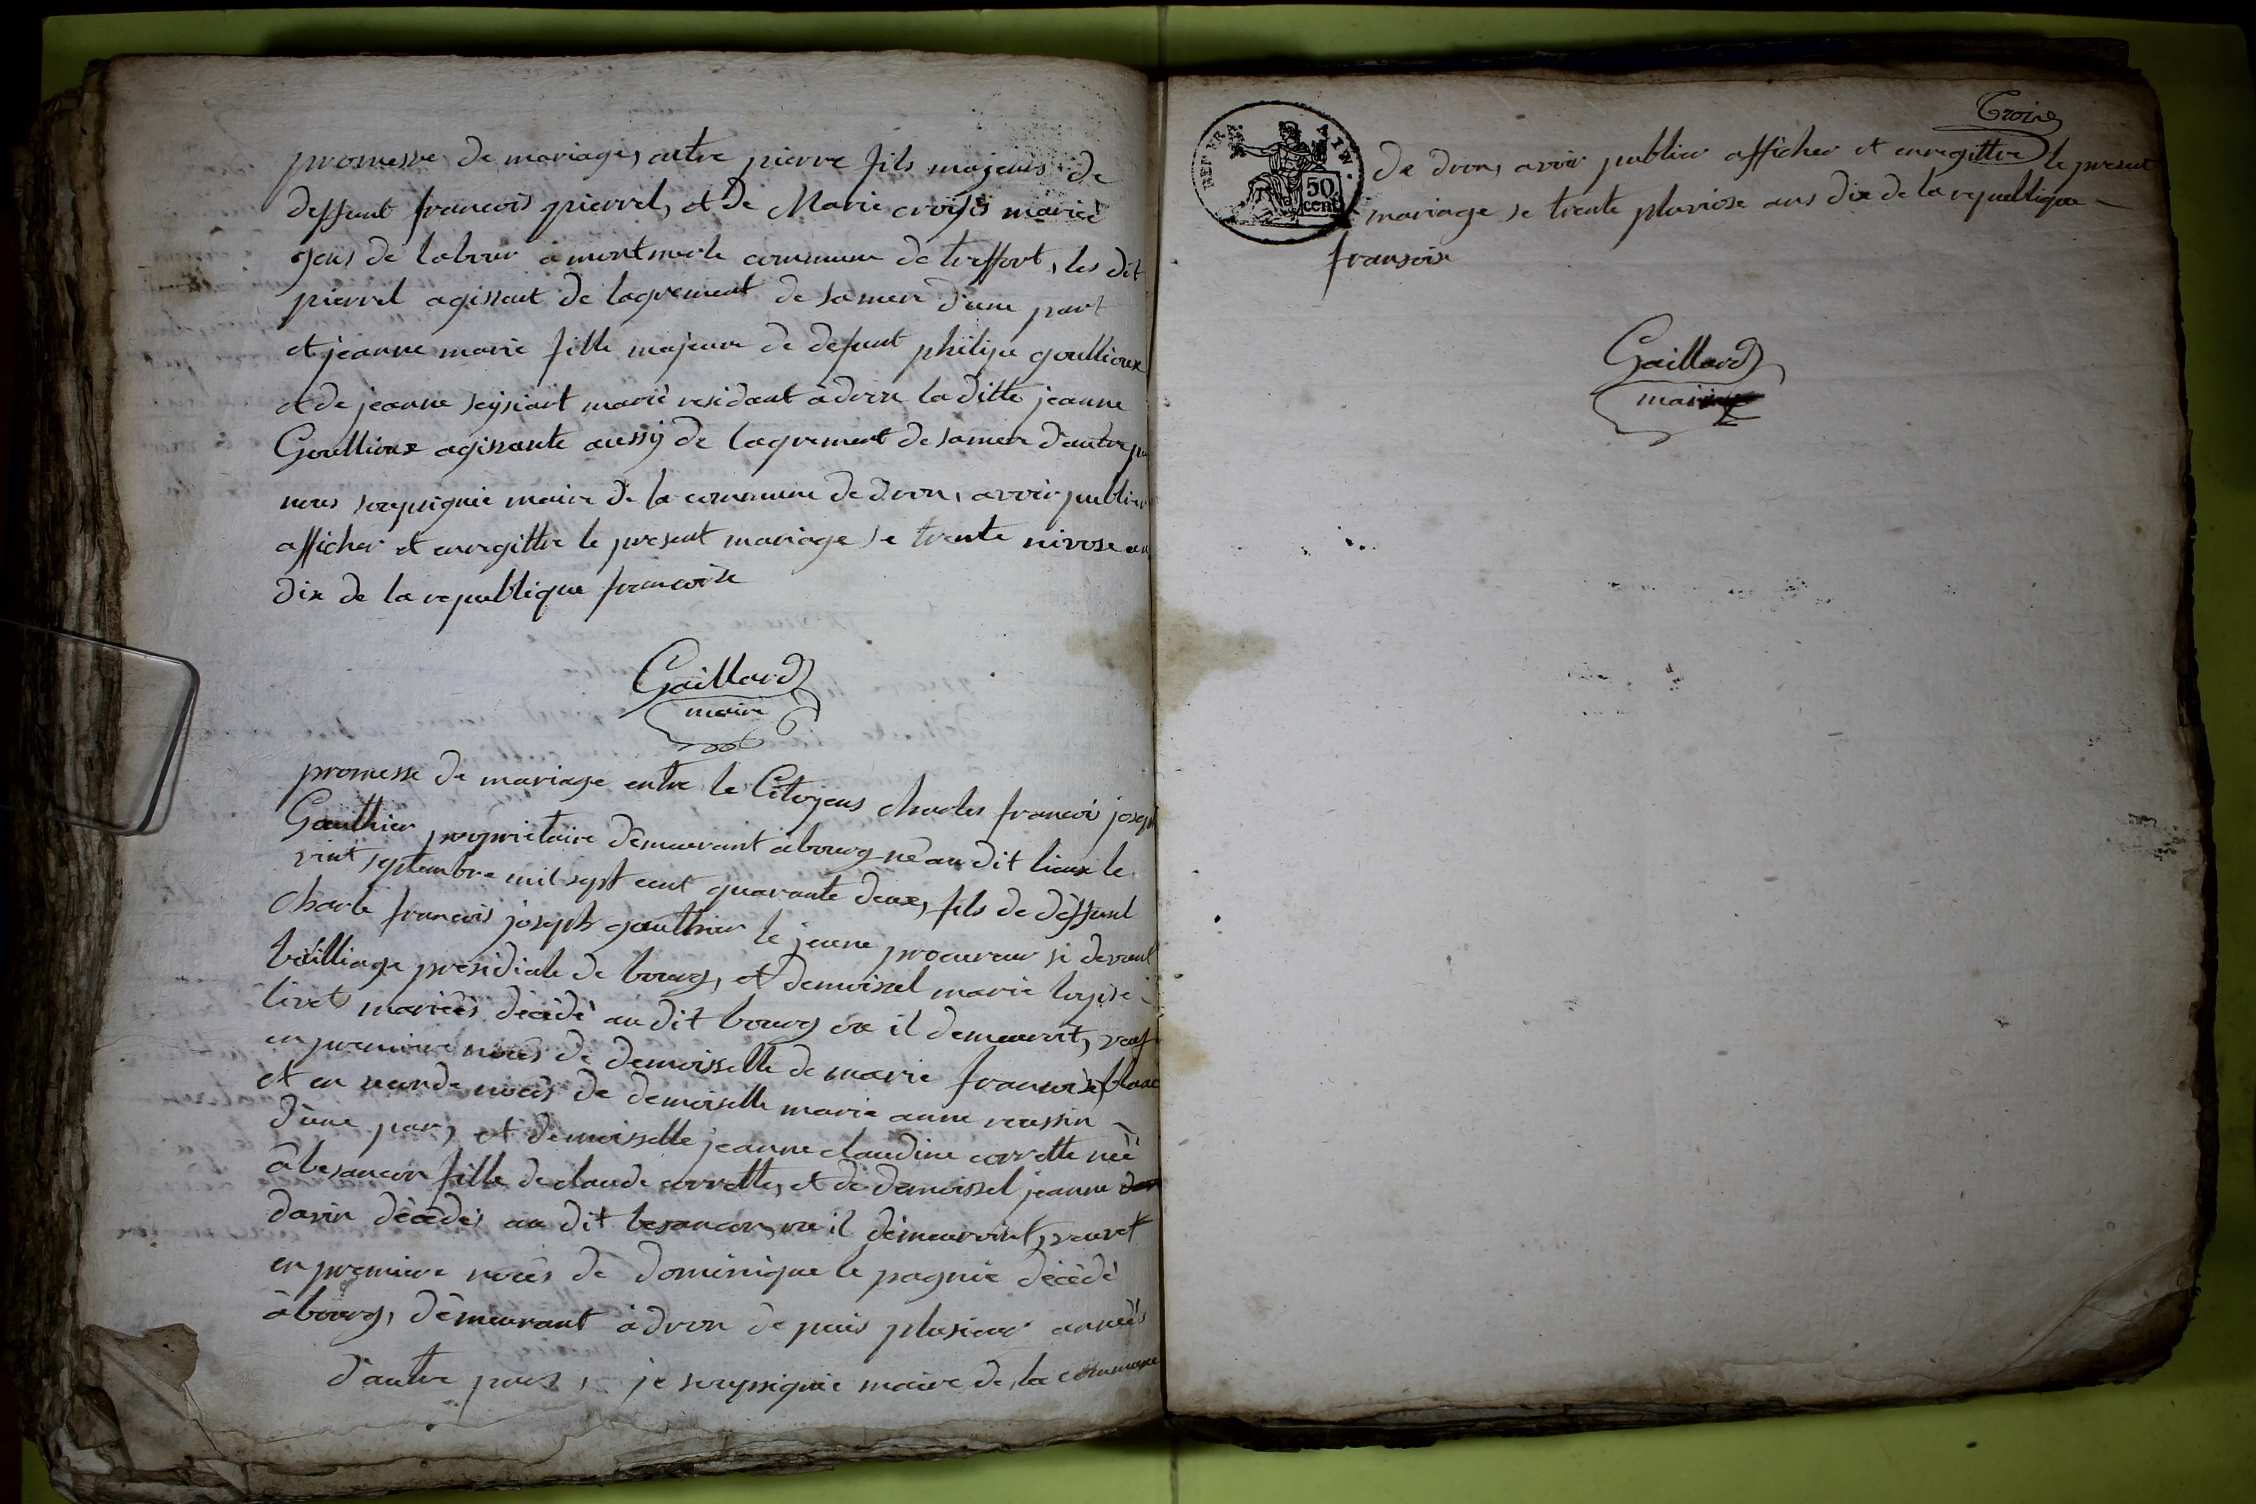 promesse de mariage, entre pierre fils majeurs de
deffunt francois pierrel, et de Marie croisis mariée
gens de labour a montmerle commune de treffort, les dit
pierrel agissant de lagrement de samere d'une part
et jeanne marie fille majeure de defunt philipe goullioux
et de jeanne seysiart marié residant à dron la ditte jeanne
Goullioux agissante aussy de lagrement de samere d'autre
nous souysignié maire de la commune de dron, avoir publier
afficher et enregittre le present mariage le trente nivose an
dix de la republique francoise
Gaillard
maire
promesse de mariage entre le Citoyens charles francois joseph
Gauthier proprietaire demeurant abourg né au dit lieux le
vint septembre mil sept cent quarante deux, fils de deffunt
charle francois joseph gauthier le jeune procureur si devant
bailliage presidiale de bourg, et demoissel marie loyise
livet mariés décédé au dit bourg ou il demeuroit, veuf
en premiere noces de demoisselle de marie francoise blanc
et en seconde noces de demoiselle marie anne roussin
d'une par, et demoisselle jeanne claudine corvette née
à besancon fille de claude corvette, et de demoissel jeanne
davin décédés au dit besancon ou il démeuroint, veuve
en premiere noces de dominique le pagnie décédé
à bourg, démeurant à dron de puis plusieur années
d'autre part, je souyssignié maire de la commune
Troize
de dron, avoir publier afficher et enregittre le present
mariage le trente pluviose ans dix de la republique
fransoise
REP FRA
50
cent
Gaillard
maire